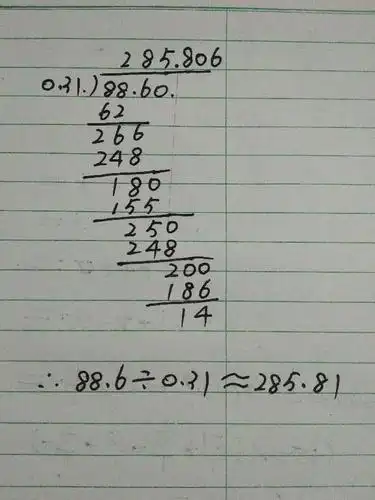 285.806
0.31.)88.60.
62
266
248
180
155
250
248
200
186
14
∴ 88.6÷0.31≈285.81